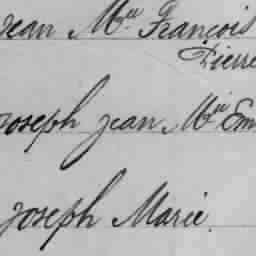 Jean Mie François
Pierre
Joseph Jean Mie Em
Joseph Marie.